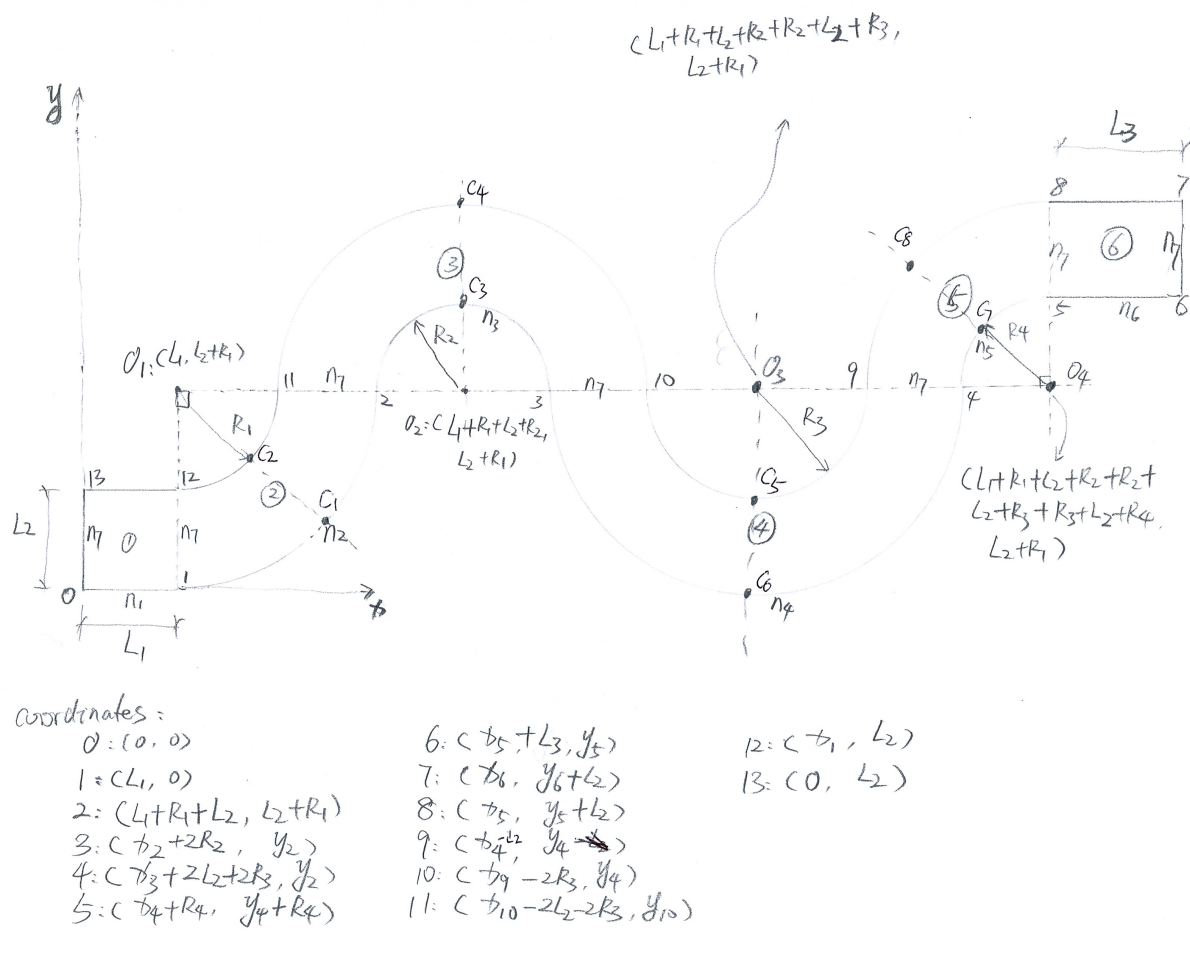 (L1+R1+L2+R2+R2+L2+R3,
L2+R1)
y
L3
8
7
C4
C8
n7
6
n7
3
5
C3
n3
C7
R4
5
n6
6
n5
R2
O1:(L1, L2+R1)
11
n7
2
3
n7
10
O3
9
n7
4
O4
R1
O2:(L1+R1+L2+R2,
L2+R1)
R3
C2
13
12
2
C1
n2
C5
4
(L1+R1+L2+R2+R2+
L2+R3+R3+L2+R4,
L2+R1)
L2
n7
1
n7
1
0
n1
x
C6
n4
L1
coordinates:
0:(0, 0)
1:(L1, 0)
2:(L1+R1+L2, L2+R1)
3:(x2+2R2, y2)
4:(x3+2L2+2R3, y2)
5:(x4+R4, y4+R4)
6:(x5+L3, y5)
7:(x6, y6+L2)
8:(x5, y5+L2)
9:(x4-L2, y4)
10:(x9-2R3, y4)
11:(x10-2L2-2R3, y10)
12:(x1, L2)
13:(0, L2)